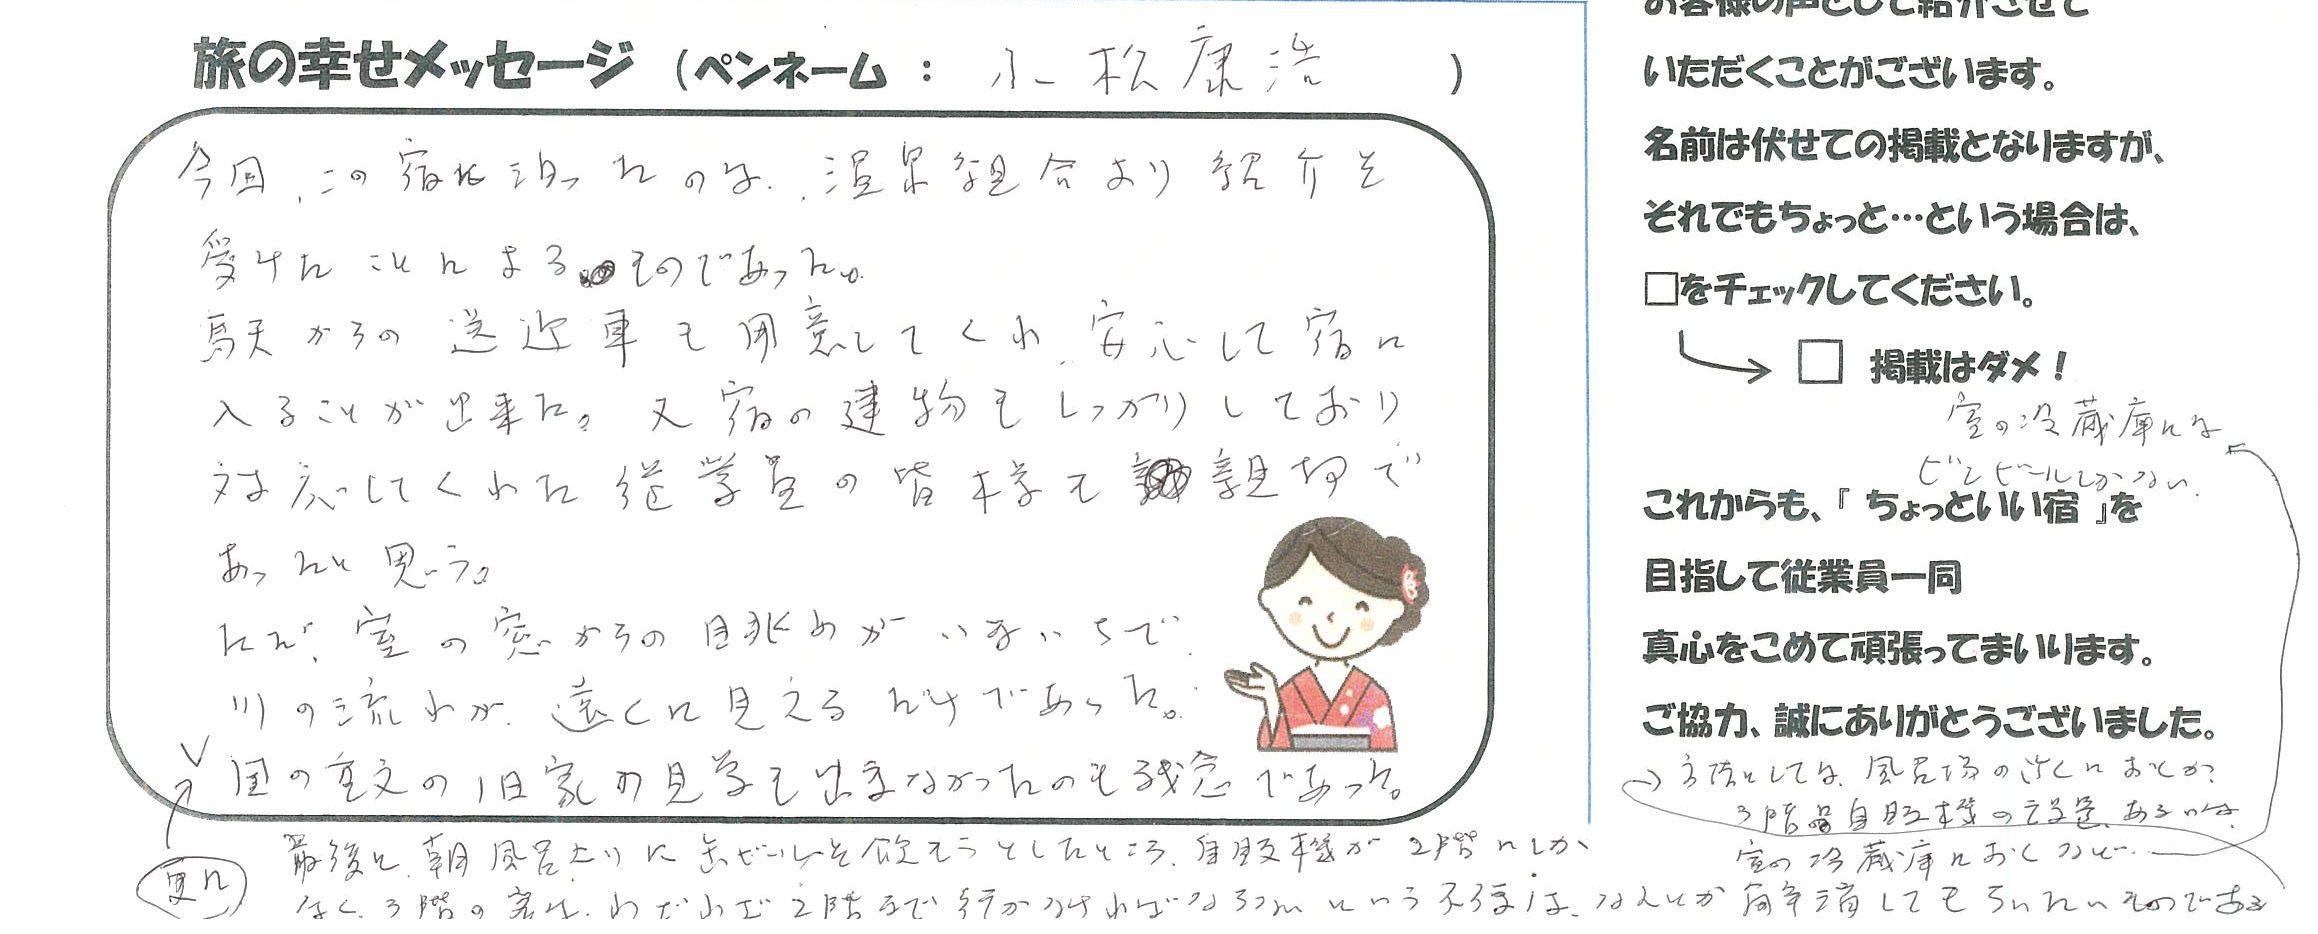 旅の幸せメッセージ (ペンネーム : 小松康浩 )
今回、この宿に泊ったのは、温泉組合より紹介を
受けたことによるものであった。
駅からの送迎車も用意してくれ、安心して宿に
入ることが出来た。又宿の建物もしっかりしており
対応してくれた従業員の皆様も親切で
あったと思う。
ただ、室の窓からの眺めがいまいちで、
川の流れが、遠くに見えるだけであった。
更に
国の重文の旧家の見学も出来なかったのも残念であった。
最後に、朝風呂上りに缶ビールを飲もうとしたところ、自販機が2階にしか
なく、3階の客は、わざわざ2階まで行かなければならないという不便は、なんとか解消してもらいたいものである
お客様の声として紹介させて
いただくことがございます。
名前は伏せての掲載となりますが、
それでもちょっと…という場合は、
□をチェックしてください。
□ 掲載はダメ!
室の冷蔵庫には
ビンビールしかない。
これからも、『ちょっといい宿』を
目指して従業員一同
真心をこめて頑張ってまいります。
ご協力、誠にありがとうございました。
→方法としては、風呂場の近くにおくとか、
3階自販機の設置、あるいは、
室の冷蔵庫におくなど